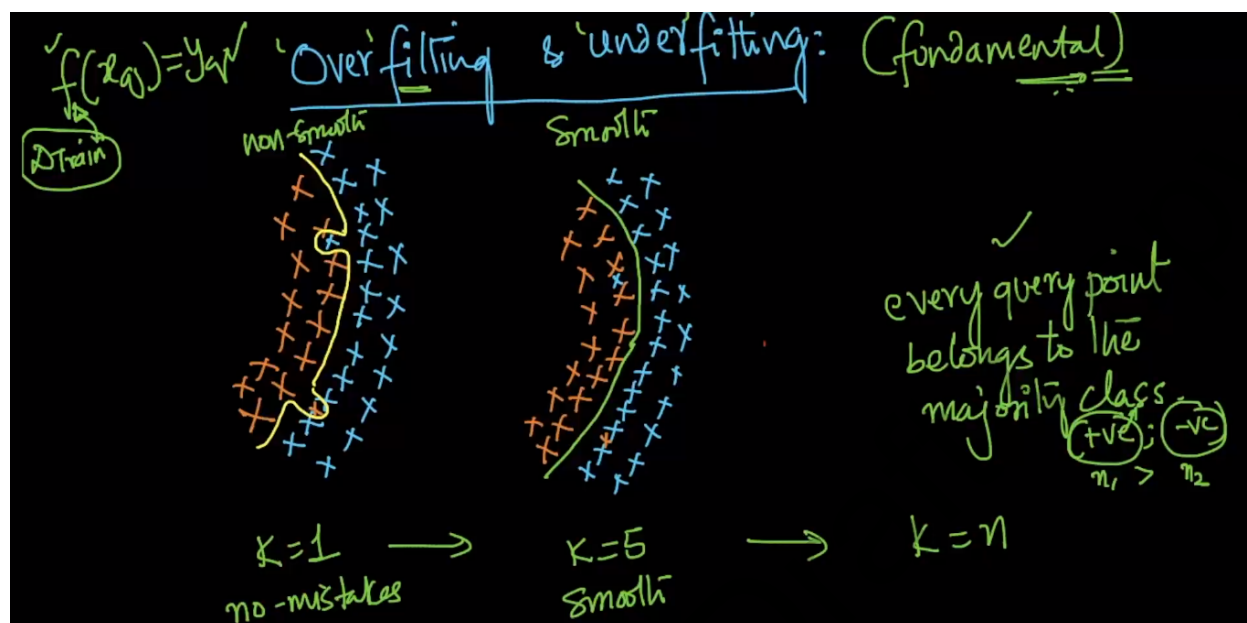 ✓f(xq)=yq✓ 'Over'fitting & 'under'fitting: (fundamental)
DTrain
non-smooth
Smooth
✓
every query point
belongs to the
majority class.
+ve ; -ve
n₁ > n₂
K=1 → K=5 → K=n
no-mistakes
Smooth